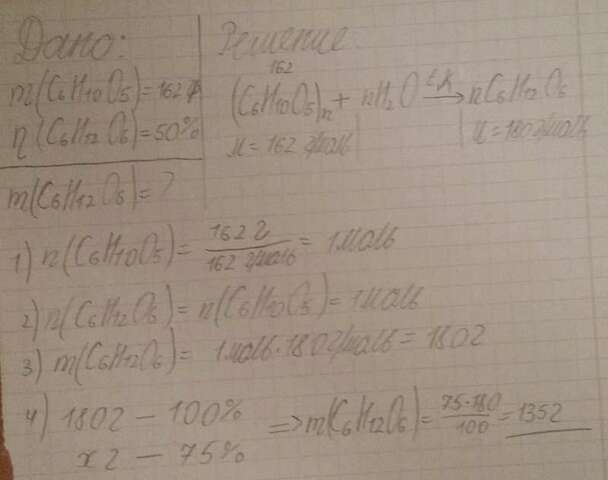 Дано:
m(C6H10O5)=162г
η(C6H12O6)=50%
m(C6H12O6)=?
Решение
162
(C6H10O5)n + nH2O t,k→ nC6H12O6
M=162 г/моль
M=180 г/моль
1) n(C6H10O5)= 162 г / 162 г/моль = 1 моль
2) n(C6H12O6)= n(C6H10O5)= 1 моль
3) m(C6H12O6)= 1 моль·180 г/моль = 180г
4) 180г – 100%
x г – 75%
=> m(C6H12O6)= 75·180 / 100 = 135г